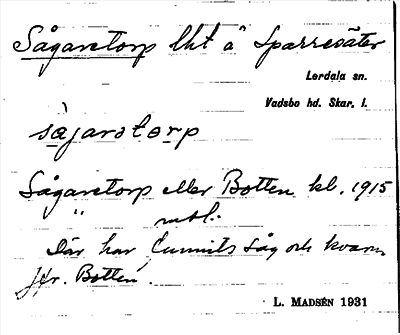 Sågaretorp lht å Sparresäter
Lerdala sn.
Vadsbo hd. Skar. l.
såjarɘtorp
Sågaretorp eller Botten kl. 1915
" mtl:
Där har funnits såg och kvarn
Jfr. Botten.
L. MADSÉN 1931